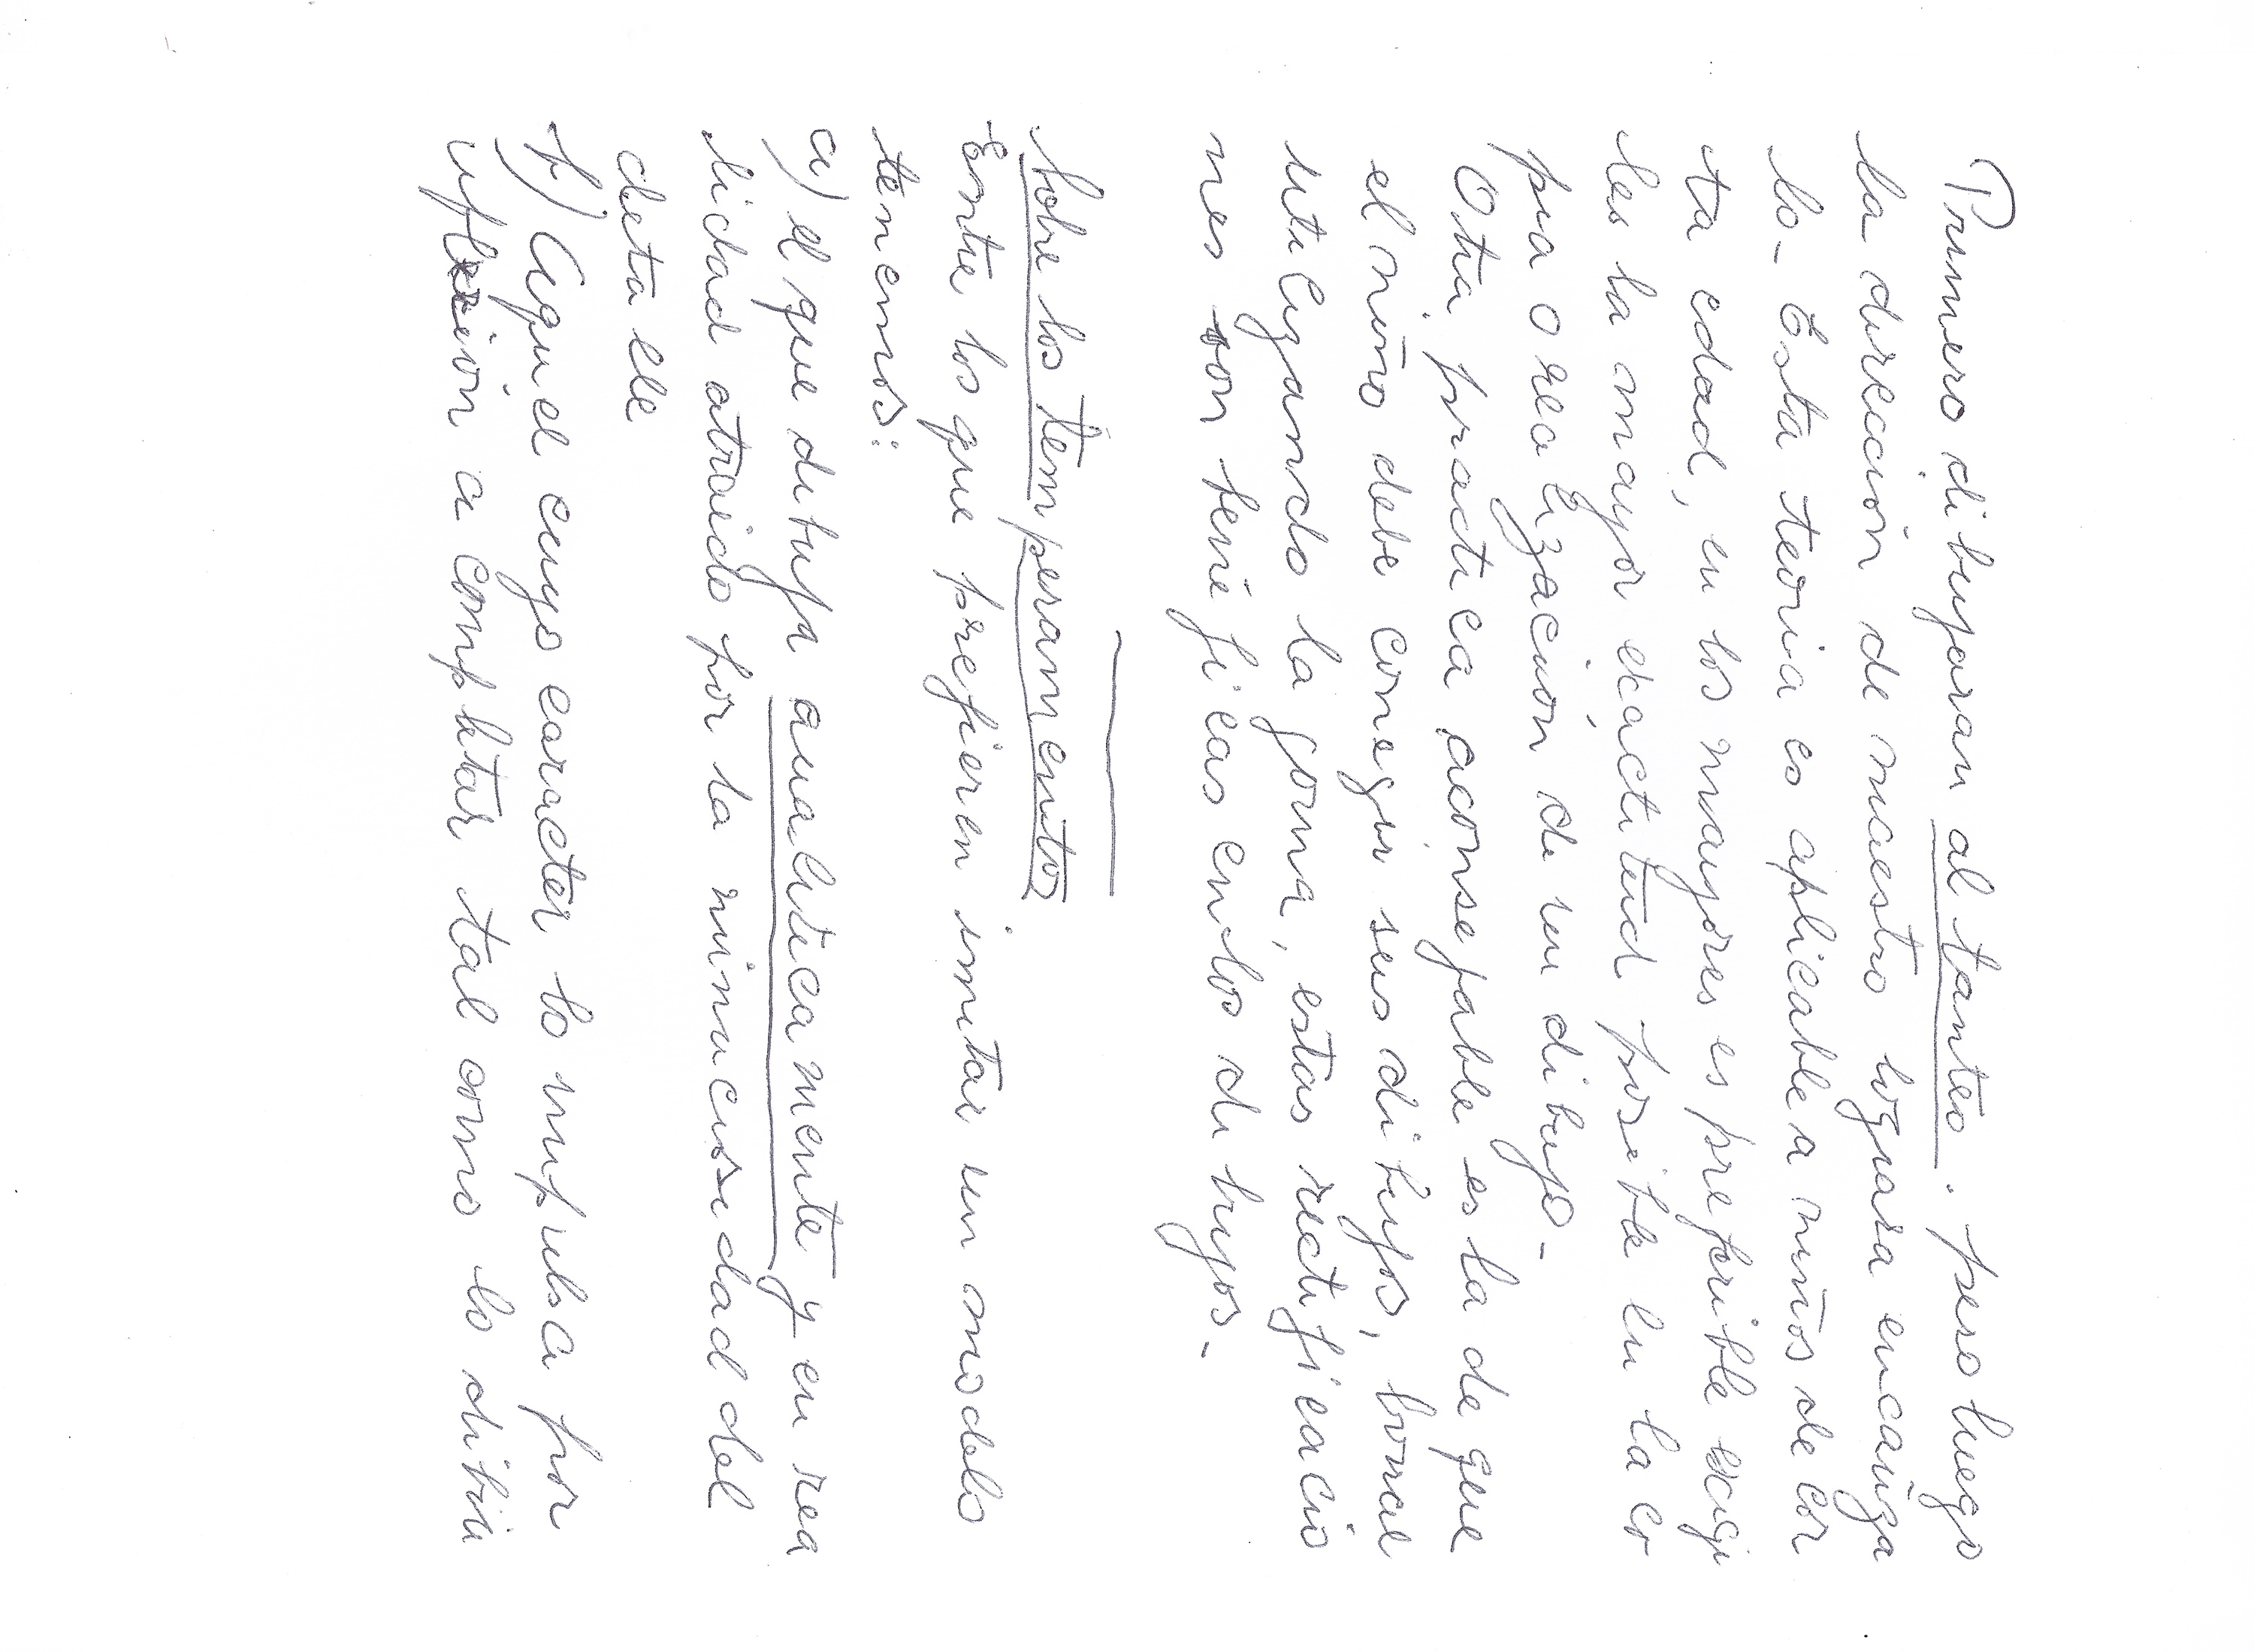 Primero dibujaran al tanteo. pero luego
la dirección de maestro logrará encauza
lo - Esta teoria es aplicable a niños de cor
ta edad, en los mayores es preferible exigi
les la mayor exáctitud posible en la co
pia o realización de un dibujo -
Otra práctica aconsejable es la de que
el niño debe corregir sus dibujos, borrar
utilizando la goma, estas rectificacio
nes son beneficas en los dibujos -
Sobre los temperamentos
Entre los que prefieren imitar un modelo
tenemos:
a) el que dibuja analiticamente y en rea
lidad atraido por la minuciosidad del
detalle
b) Aquel cuyo caracter lo impulsa por
reflexión a completar tal como lo dibu